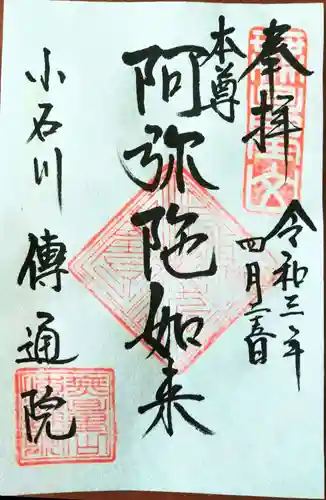 奉拝
令和三年
四月二日
本尊
阿弥陀如来
小石川
傳通院